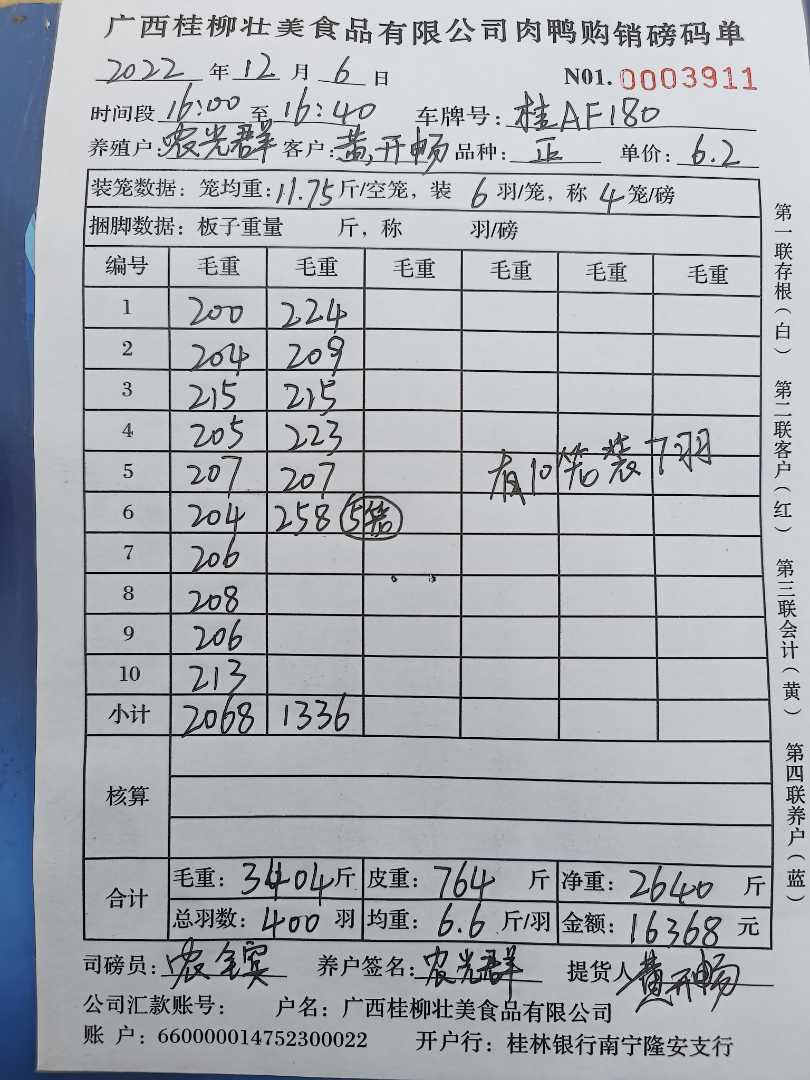 广西桂柳壮美食品有限公司肉鸭购销磅码单
2022 年 12 月 6 日 N01. 0003911
时间段 16:00 至 16:40 车牌号: 桂AF180
养殖户: 农光群 客户: 黄开畅 品种: 正 单价: 6.2
装笼数据: 笼均重: 11.75 斤/空笼, 装 6 羽/笼, 称 4 笼/磅
捆脚数据: 板子重量 斤, 称 羽/磅
编号 毛重 毛重 毛重 毛重 毛重 毛重
1 200 224
2 204 209
3 215 215
4 205 223
5 207 207 有10笼装7羽
6 204 258 5笼
7 206
8 208
9 206
10 213
小计 2068 1336
核算
合计 毛重: 3404 斤 皮重: 764 斤 净重: 2640 斤
总羽数: 400 羽 均重: 6.6 斤/羽 金额: 16368 元
司磅员: 农全宾 养户签名: 农光群 提货人 黄开畅
公司汇款账号: 户名: 广西桂柳壮美食品有限公司
账 户: 660000014752300022 开户行: 桂林银行南宁隆安支行
第一联存根(白) 第二联客户(红) 第三联会计(黄) 第四联养户(蓝)